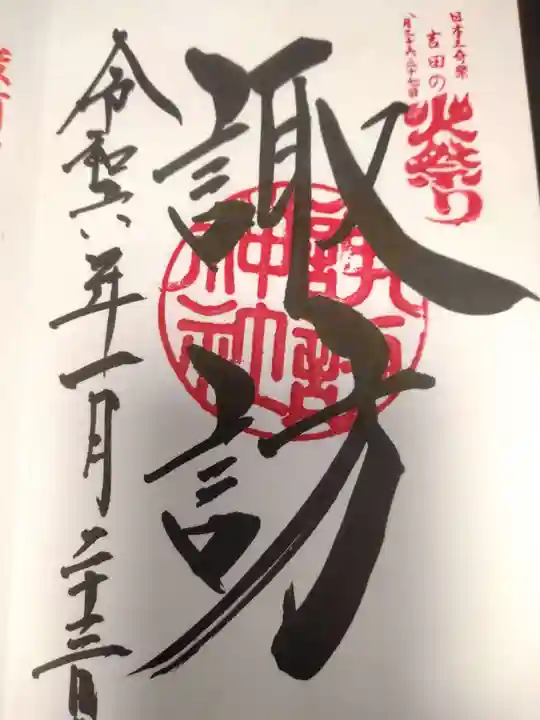 日本三奇祭
吉田の
火祭り
八月二十六、二十七日
諏訪
諏訪
神社
令和六年一月二十三日